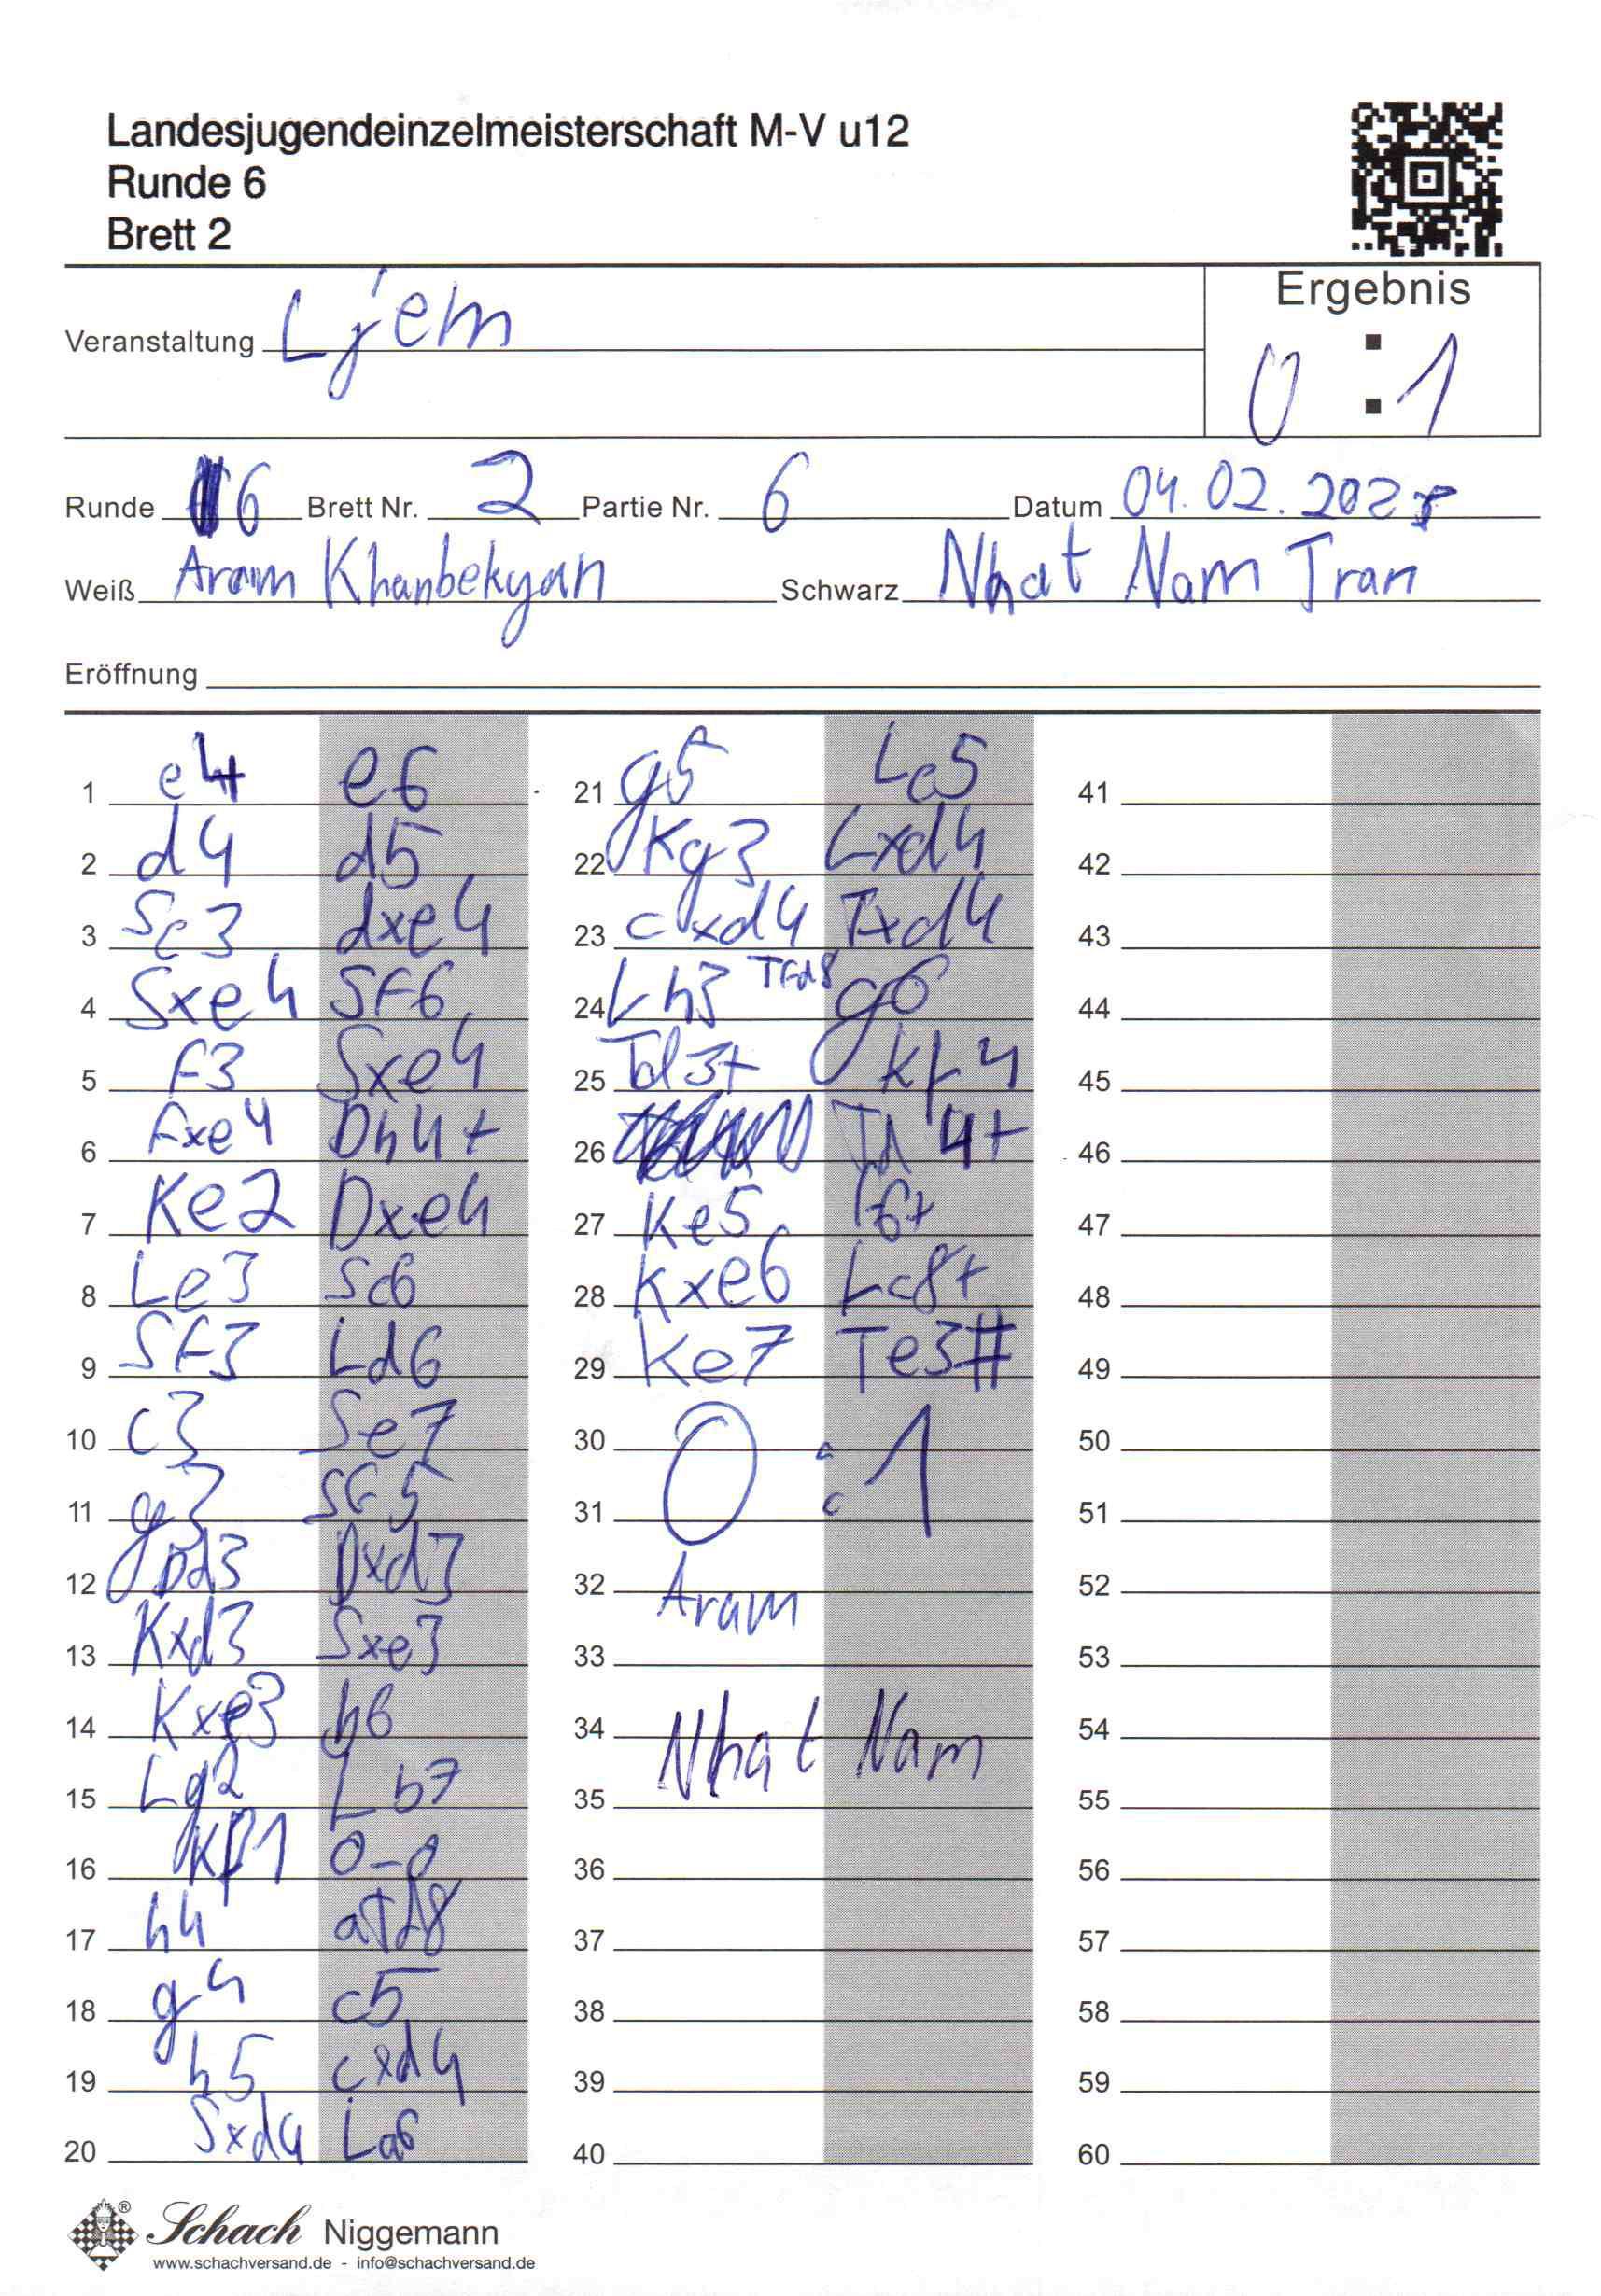 Landesjugendeinzelmeisterschaft M-V u12
Runde 6
Brett 2
Ergebnis
Veranstaltung Ljem
0 : 1
Runde 6 Brett Nr. 2 Partie Nr. 6 Datum 04.02.202
Weiß Aram Khanbekyan Schwarz Nhat Nam Tran
Eröffnung
1 e4 e6
2 d4 d5
3 Sc3 dxe4
4 Sxe4 Sf6
5 f3 Sxe4
6 fxe4 Dh4+
7 Ke2 Dxe4
8 Le3 Sc6
9 Sf3 Ld6
10 c3 Se7
11 g3 Sf5
12 Dd3 Dxd3
13 Kxd3 Sxe3
14 Kxe3 b6
15 Lg2 Lb7
16 Kf1 0-0
17 h4 aTd8
18 g4 c5
19 h5 cxd4
20 Sxd4 La6
21 g5 Lc5
22 Kg3 Lxd4
23 cxd4 Txd4
24 Lh3 Tfd8 g6
25 Td3+ Kf4
26 Td4+
27 Ke5 f6+
28 Kxe6 Lc8+
29 Ke7 Te3#
30 0 : 1
31
32 Aram
33
34 Nhat Nam
35
36
37
38
39
40
41
42
43
44
45
46
47
48
49
50
51
52
53
54
55
56
57
58
59
60
Schach Niggemann
www.schachversand.de - info@schachversand.de